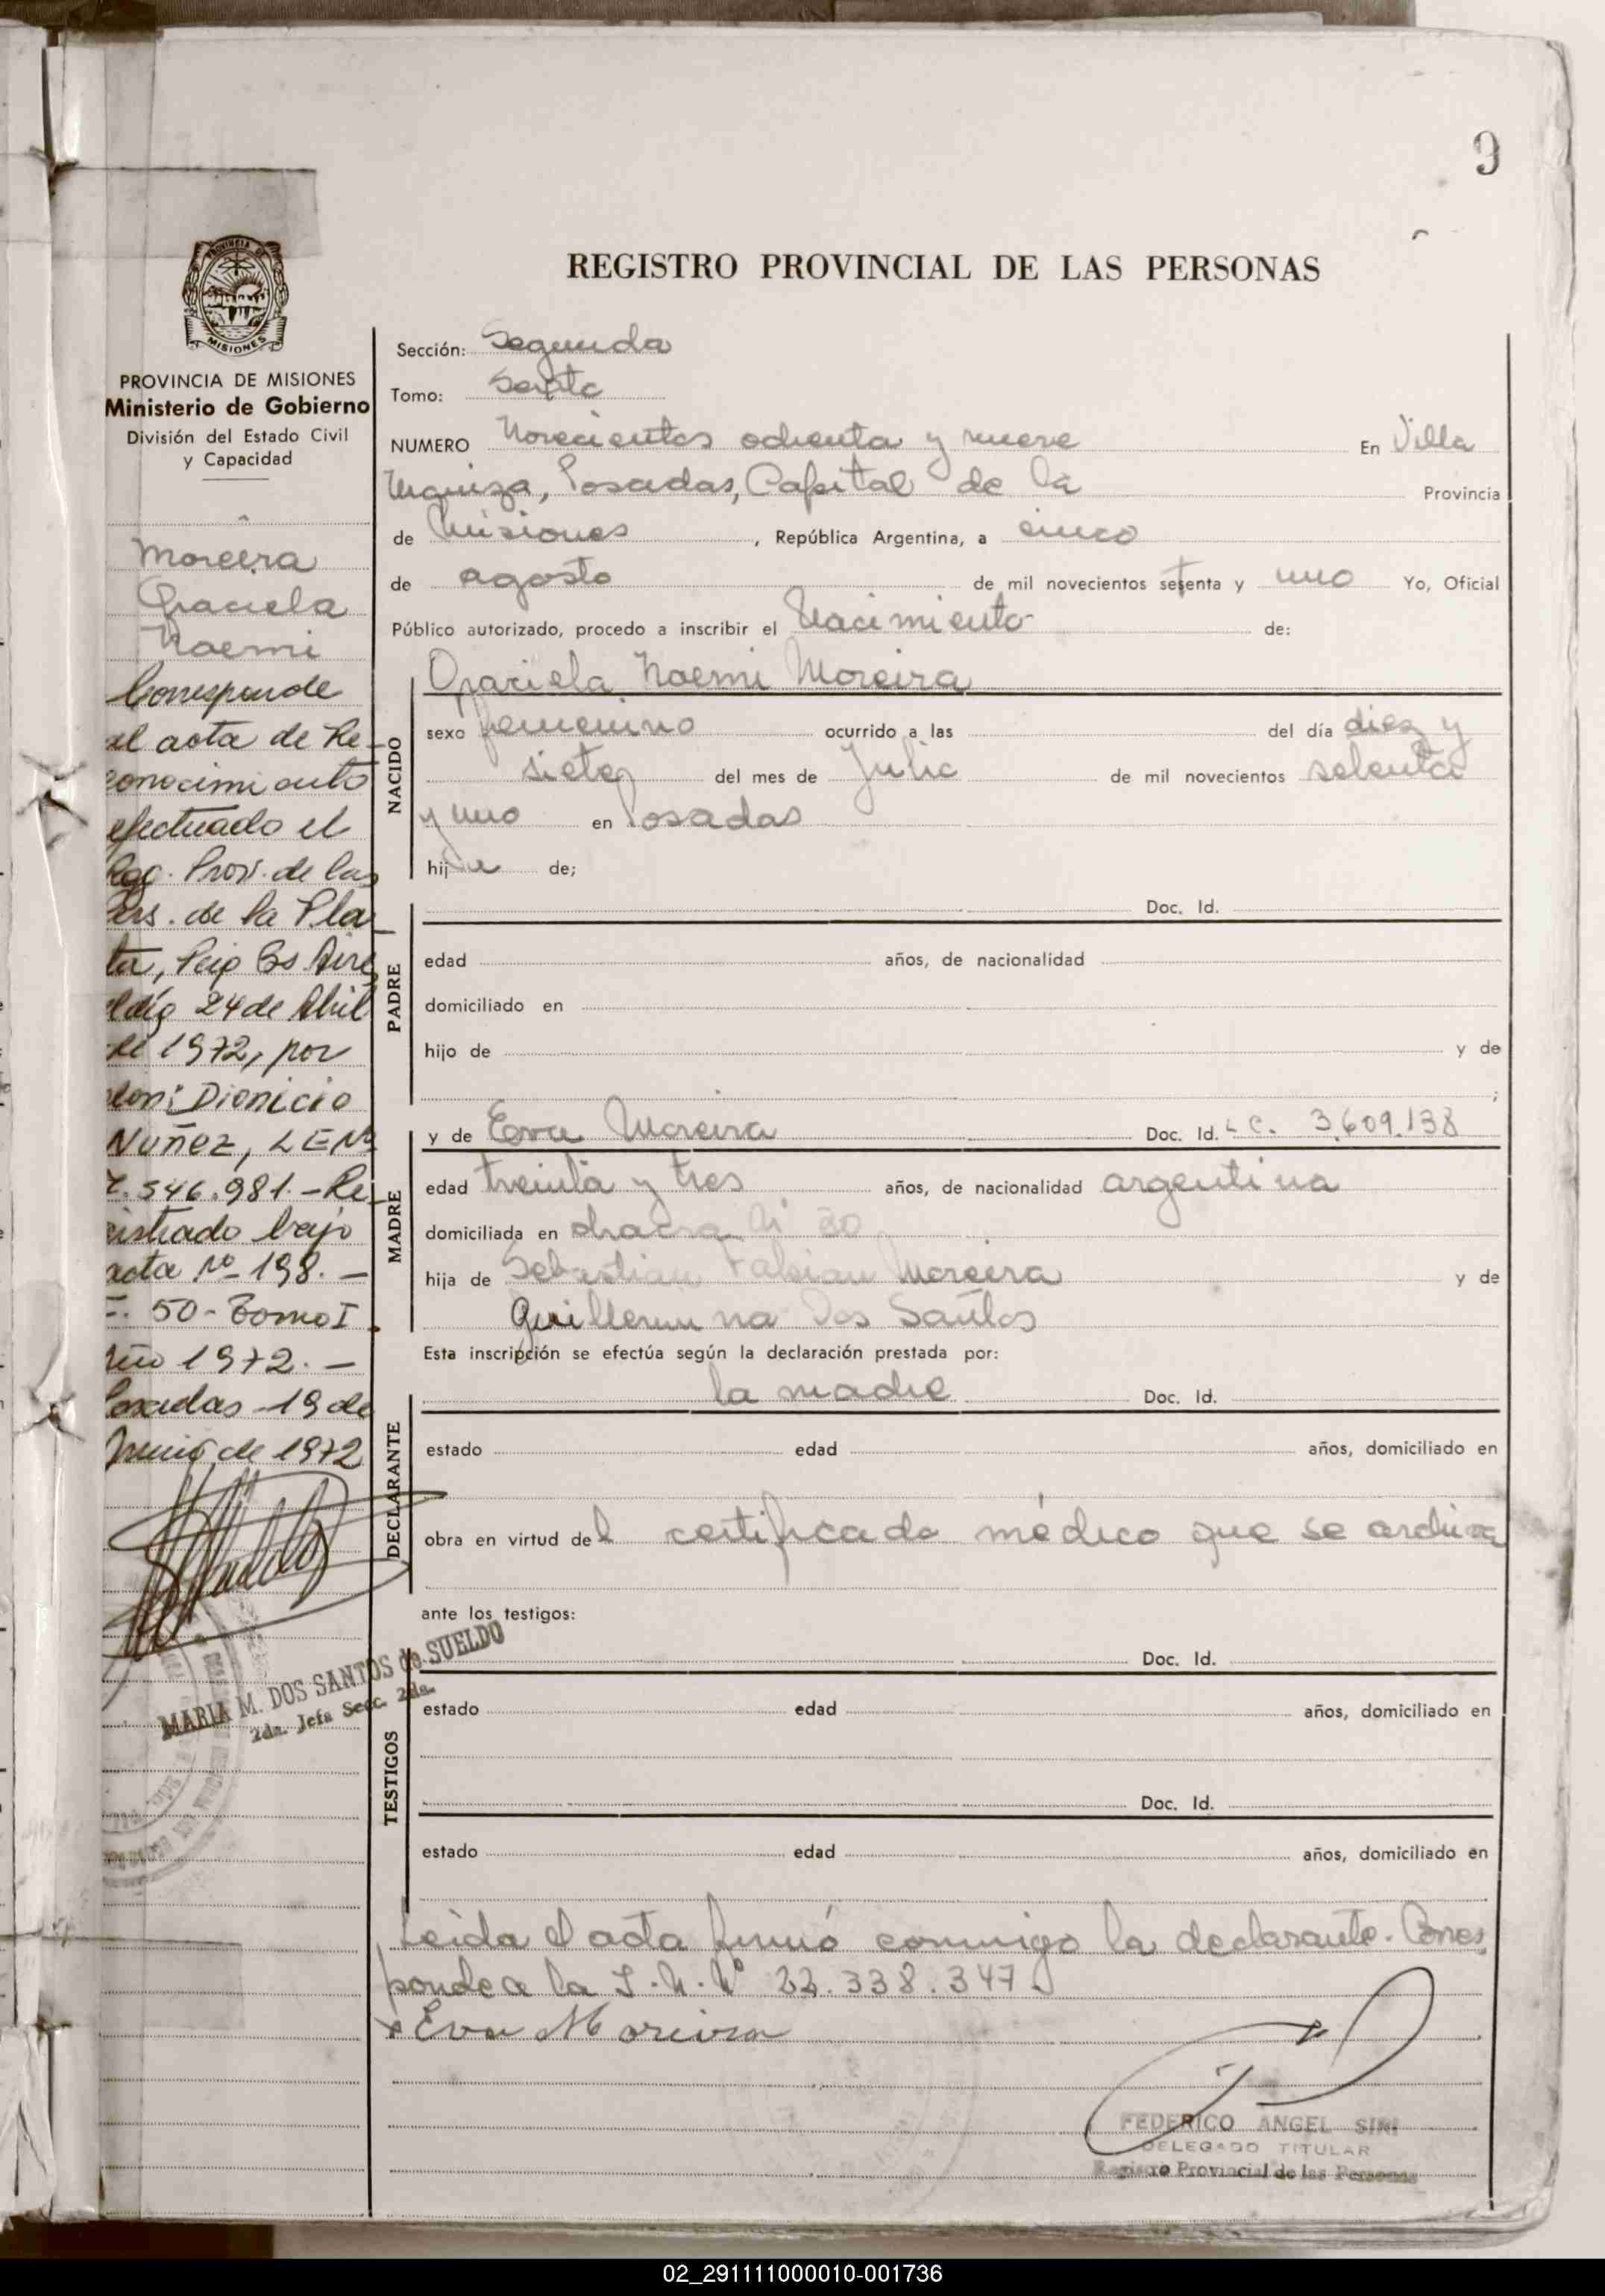 9
REGISTRO PROVINCIAL DE LAS PERSONAS
PROVINCIA DE
MISIONES
PROVINCIA DE MISIONES
Ministerio de Gobierno
División del Estado Civil
y Capacidad
Moreira
Graciela
Noemi
Corresponde
al acta de Re-
conocimiento
efectuado el
Reg. Prov. de las
Pers. de la Pla
ta, Bs Aire
el día 24 de Abril
de 1972, por
don: Dionicio
Nuñez, LE Nº
7.546.981.- Re-
gistrado bajo
acta nº 198. -
F. 50 - Tomo I
Año 1972. -
Posadas 19 de
Junio de 1972
MARIA M. DOS SANTOS de SUELDO
2da. Jefa Secc. 2da.
Sección: Segunda
Tomo: Sexto
NUMERO Novecientos ochenta y nueve En Villa
Urquiza, Posadas, Capital de la Provincia
de Misiones, República Argentina, a cinco
de agosto de mil novecientos setenta y uno Yo, Oficial
Público autorizado, procedo a inscribir el Nacimiento de:
NACIDO
Graciela Noemi Moreira
sexo femenino ocurrido a las del día diez y
siete del mes de Julio de mil novecientos setenta
y uno en Posadas
hija de;
PADRE
Doc. Id.
edad años, de nacionalidad
domiciliado en
hijo de y de
;
MADRE
y de Eva Moreira Doc. Id. L C. 3.609.138
edad treinta y tres años, de nacionalidad argentina
domiciliada en chacra Nº 30
hija de Sebastian Fabian Moreira y de
Guillermina Dos Santos
Esta inscripción se efectúa según la declaración prestada por:
DECLARANTE
la madre Doc. Id.
estado edad años, domiciliado en
obra en virtud del certificado médico que se archiva
ante los testigos:
TESTIGOS
Doc. Id.
estado edad años, domiciliado en
Doc. Id.
estado edad años, domiciliado en
Leída el acta firmó conmigo la declarante. Corres
ponde a la I. N. Nº 22.338.347
Eva Moreira
FEDERICO ANGEL SIRI
DELEGADO TITULAR
Registro Provincial de las Personas
02_291111000010-001736